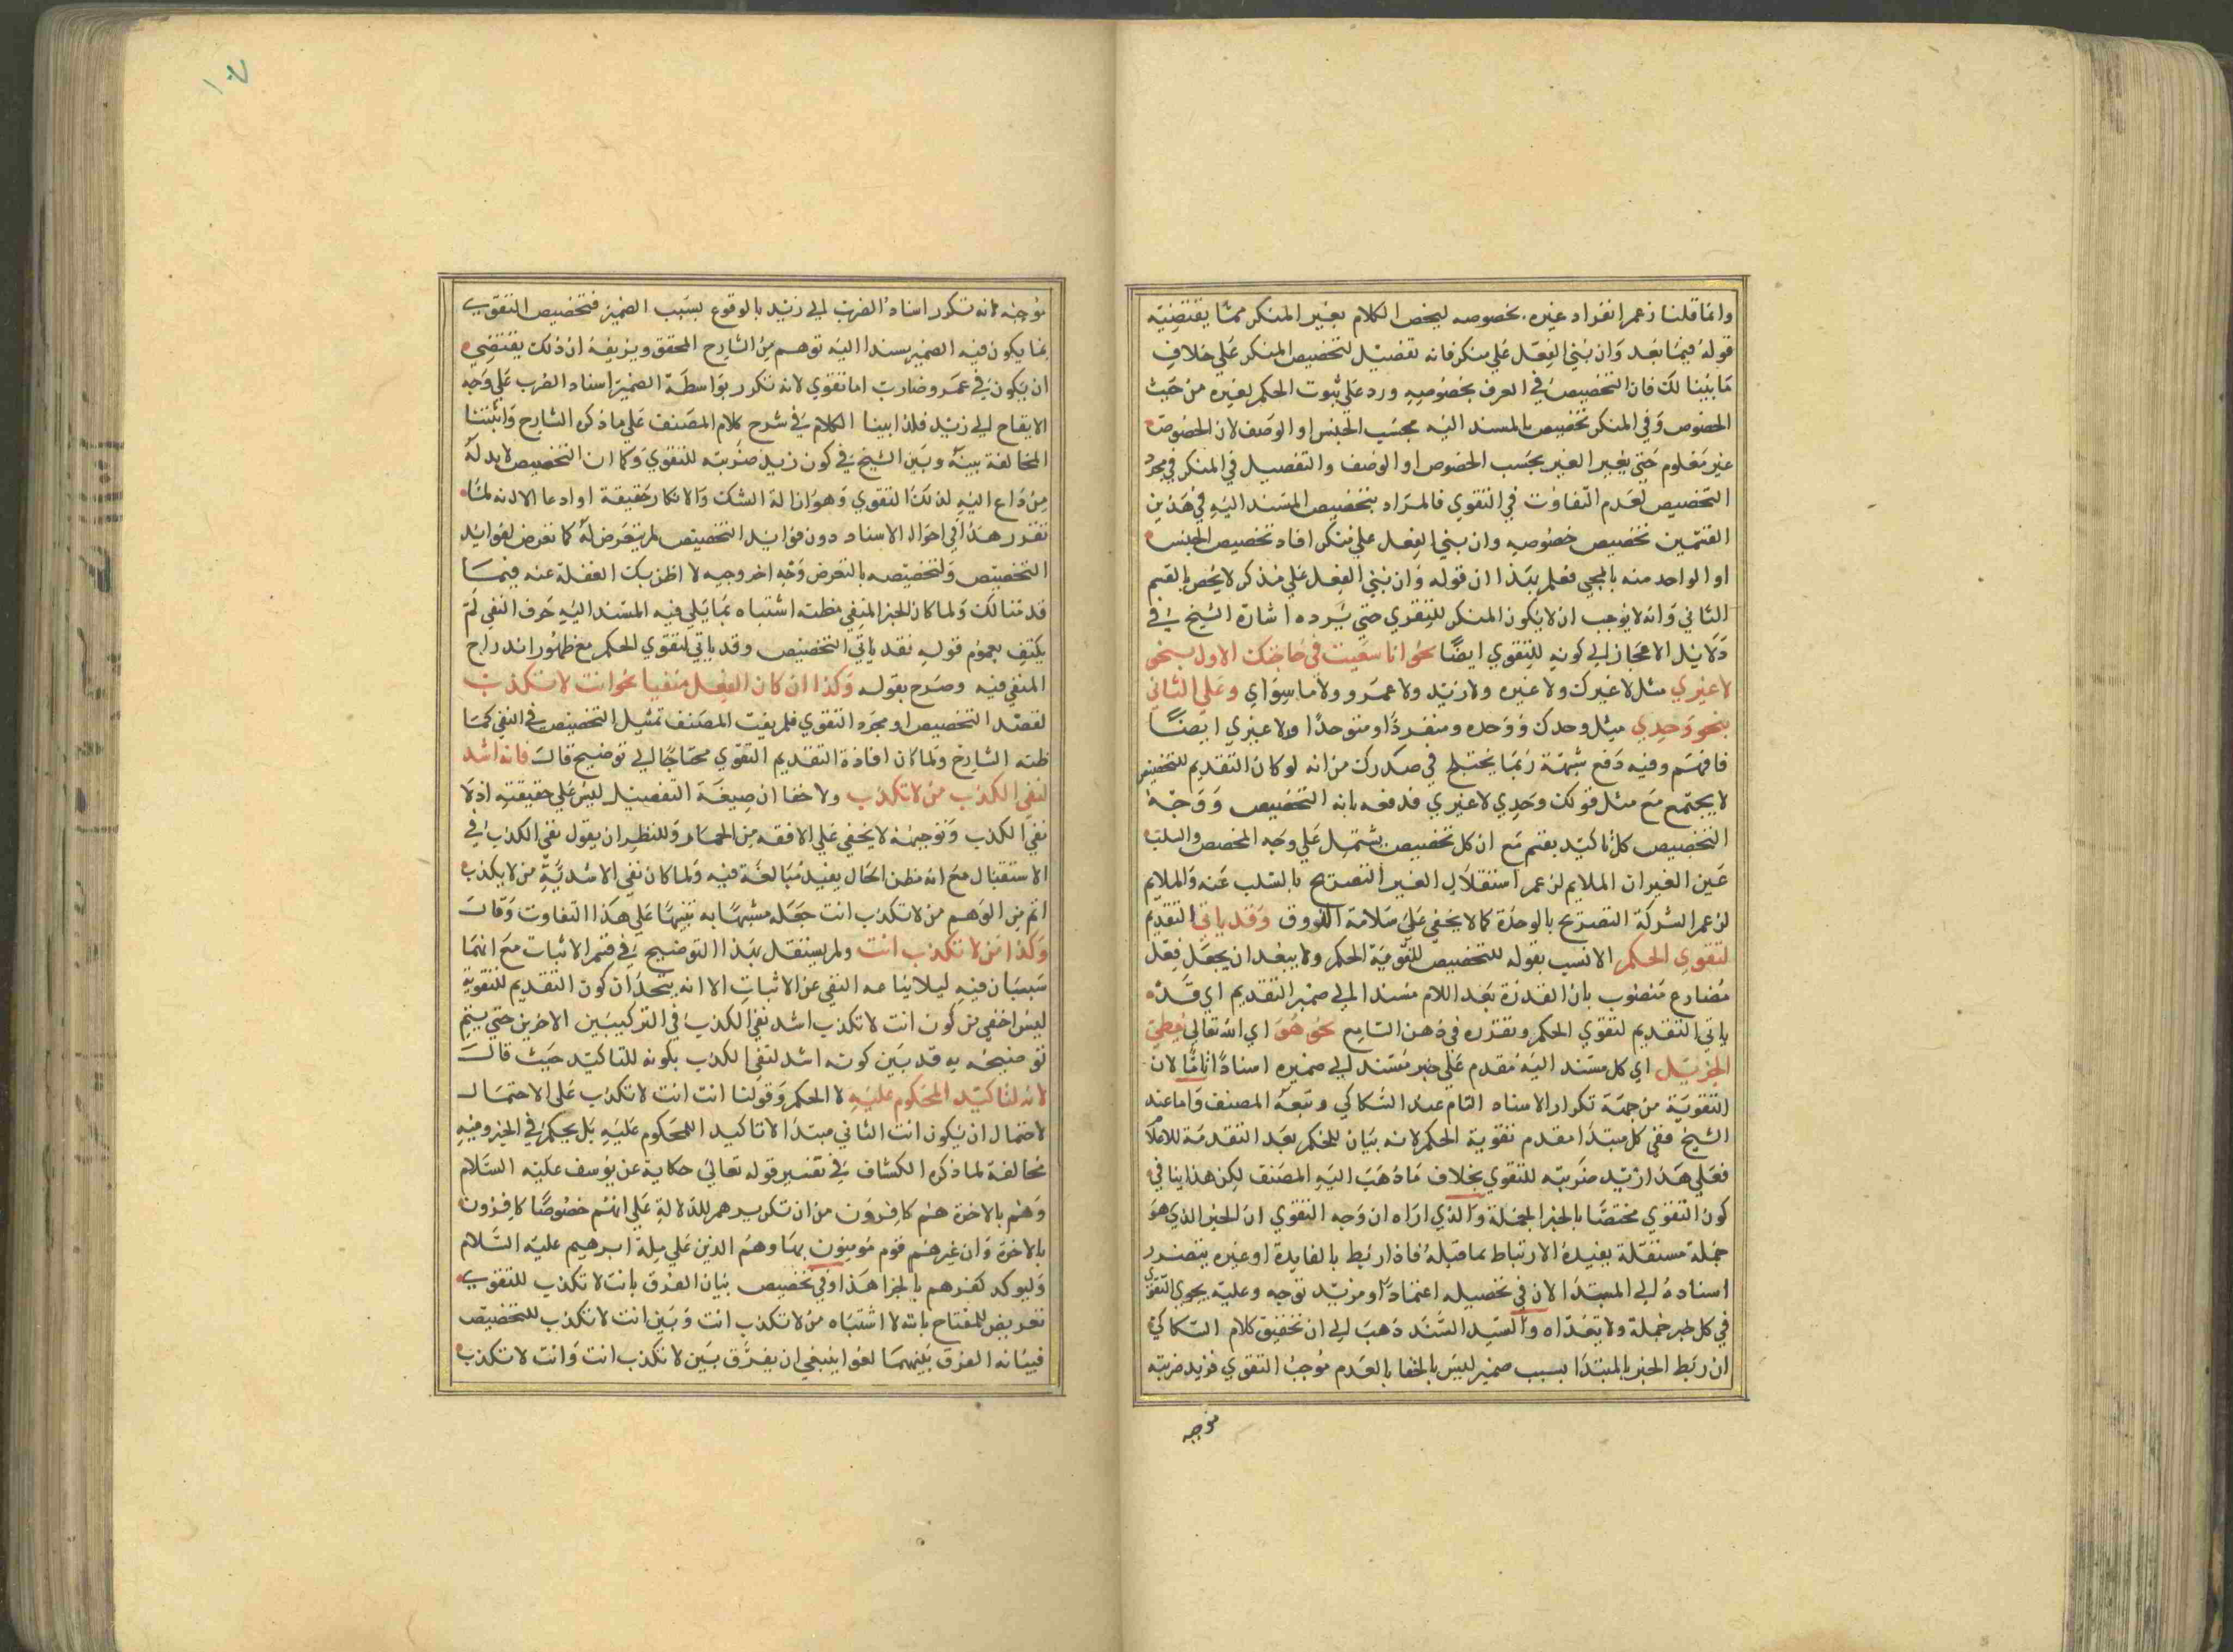 وانما قلنا زعم انفراد غيره بخصوصه ليخص الكلام بغير المنكر مما يقتضيه
قوله فيما بعد وان بني الفعل علي منكر فانه تفصيل لتخصيص المنكر علي خلاف
ما بينا لك فان التخصيص في العرف بخصوصه ورد علي ثبوت الحكم لغيره من حيث
الخصوص وفي المنكر تخصيص بالمسند اليه بحسب الجنس او الوصف لان الخصوص
غير معلوم حتي يعبر الغير بحسب الخصوص او الوصف والتفصيل في المنكر في مجرد
التخصيص لعدم التفاوت في التقوي فالمراد بتخصيص المسند اليه في هذين
القسمين تخصيص خصوصه وان بني الفعل علي منكر افاد تخصيص الجنس
او الواحد منه بالمجي فعلم بهذا ان قوله وان بني الفعل علي منكر لا يخص بالقسم
الثاني وانه لا يوجب ان لا يكون المنكر للتقوي حتي يرده اشارة الشيخ في
دلايل الاعجاز الي كونه للتقوي ايضا نحو انا سعيت في حاجتك الاول بنحو
لا غيري مثل لا غيرك ولا غيره ولا زيد ولا عمرو ولا ما سواي وعلي الثاني
بنحو وحدي مثل وحدك ووحده ومنفردا ومتوحدا ولا غيري ايضا
فافهم وفيه دفع شبهة ربما يختلج في صدرك من انه لو كان التقديم للتخصيص
لا يجتمع مع مثل قولك وحدي لا غيري فدفعه بانه التخصيص ووجه
التخصيص كل تاكيد يقتم مع ان كل تخصيص يشتمل علي وجه المخصص والسلب
عين الغير ان الملايم لزعم استقلال الغير التصريح بالسلب عنه والملايم
لزعم الشركة التصريح بالوحدة كما لا يخفي علي سلامة الذوق وقد ياتي التقديم
لتقوي الحكم الانسب بقوله للتخصيص لتقوية الحكم ولا يبعد ان يجعل فعل
مضارع منصوب بان القدرة بعد اللام مسندا الي ضمير التقديم اي قد
ياتي التقديم لتقوي الحكم وتقرره في ذهن السامع نحو هو اي الله تعالي يعطي
الجزيل اي كل مسند اليه مقدم علي خبر مسند الي ضميره اسنادا تاما لان
التقوية من جهة تكرار الاسناد التام عند السكاكي وتبعه المصنف واما عند
الشيخ ففي كل مبتدا مقدم تقوية الحكم لانه بيان للحكم بعد التقدمة للاعلام
فعلي هذا زيد ضربته للتقوي بخلاف ما ذهب اليه المصنف لكن هذا ينافي
كون التقوي مختصا بالخبر الجملة والذي اراه ان وجه التقوي ان الخبر الذي هو
جملة مستقلة بفيده الارتباط بما قبله فاذا ربط بالفايدة او غيره يتصدر
اسناده الي المبتدا لان في تحصيله اعتمادا ومزيد توجه وعليه يجري التقوي
في كل خبر جملة ولا يتعداه والسيد السند ذهب الي ان تحقيق كلام السكاكي
ان ربط الخبر بالمبتدا بسبب ضمير ليس بالخفا بالعدم موجب التقوي فزيد ضربته
موجبه
موجبه لانه تكرر اسناد الضرب الي زيد بالوقوع بسبب الضمير فتخصيص التقوي
بما يكون فيه الضمير مسندا اليه توهم من الشارح المحقق ويزيفه ان ذلك يقتضي
ان يكون في عمرو ضارب اما تقوي لانه تكرر بواسطة الضمير اسناد الضرب علي وجه
الايقاع الي زيد فلذا بينا الكلام في شرح كلام المصنف علي ما ذكره الشارح واثبتنا
المخالفة بينه وبين الشيخ في كون زيد ضربته للتقوي وكما ان التخصيص لا بد له
من داع اليه لذلك التقوي وهو ازالة الشك والانكار حقيقة او ادعا الا انه لما
تقرر هذا في احوال الاسناد دون فوايد التخصيص لم يتعرض له كما تعرض لفوايد
التخصيص ولتخصيصه بالتعرض وجه اخر وجيه لا اظن بك الغفلة عنه فيما
قدمنا لك ولما كان الخبر المنفي مظنة اشتباه بما يلي فيه المسند اليه حرف النفي لم
يكتف بعموم قوله فقد ياتي التخصيص وقد ياتي لتقوي الحكم مع ظهور اندراج
المنفي فيه وصرح بقوله وكذا ان كان الفعل منفيا نحو انت لا تكذب
لقصد التخصيص او مجرد التقوي فلم يفت المصنف تمثيل التخصيص في النفي كما
ظنه الشارح ولما كان افادة التقديم التقوي محتاجا الي توضيح قال فانه اشد
لنفي الكذب من لا تكذب ولا خفا ان صيغة التفضيل ليس علي حقيقته اذ لا
نفي الكذب وتوجيهه لا يخفي علي الافقه من الحمار وللنظر ان يقول نفي الكذب في
الاستقبال مع انه مظن الحال يفيد مبالغة فيه ولما كان نفي الاشدية من لا يكذب
اتم من الوهم من لا تكذب انت جعله مشبها به تنبيها علي هذا التفاوت وقال
وكذا من لا تكذب انت ولم يستقل بهذا التوضيح في قسم الاثبات مع انهما
سيان فيه ليلا يناعه النفي عن الاثبات الا انه يتجه ان كون التقديم للتقوية
ليس اخفي من كون انت لا تكذب اشد نفي الكذب في التركيبين الاخرين حتي يتم
توضيحه به قد بين كونه اشد لنفي الكذب بكونه للتاكيد حيث قال
لانه لتاكيد المحكوم عليه لا الحكم وقولنا انت انت لا تكذب علي الاحتمال
لاحتمال ان يكون انت الثاني مبتدا لا تاكيد المحكوم عليه بل يحكم في الخبر وفيه
مخالفة لما ذكره الكشاف في تفسير قوله تعالي حكاية عن يوسف عليه السلام
وهم بالاخرة هم كافرون من ان تكرير هم للدلالة علي انهم خصوصا كافرون
بالاخرة وان غيرهم قوم مومنون بها وهم الذين علي ملة ابرهيم عليه السلام
وليوكد كفرهم بالجزا هذا وفي تخصيص بيان الفرق بانت لا تكذب للتقوي
تعريض للمفتاح بانه لا اشتباه من لا تكذب انت وبين انت لا تكذب للتخصيص
فبيانه الفرق بينهما لغو اينبغي ان يفرق بين لا تكذب انت وانت لا تكذب